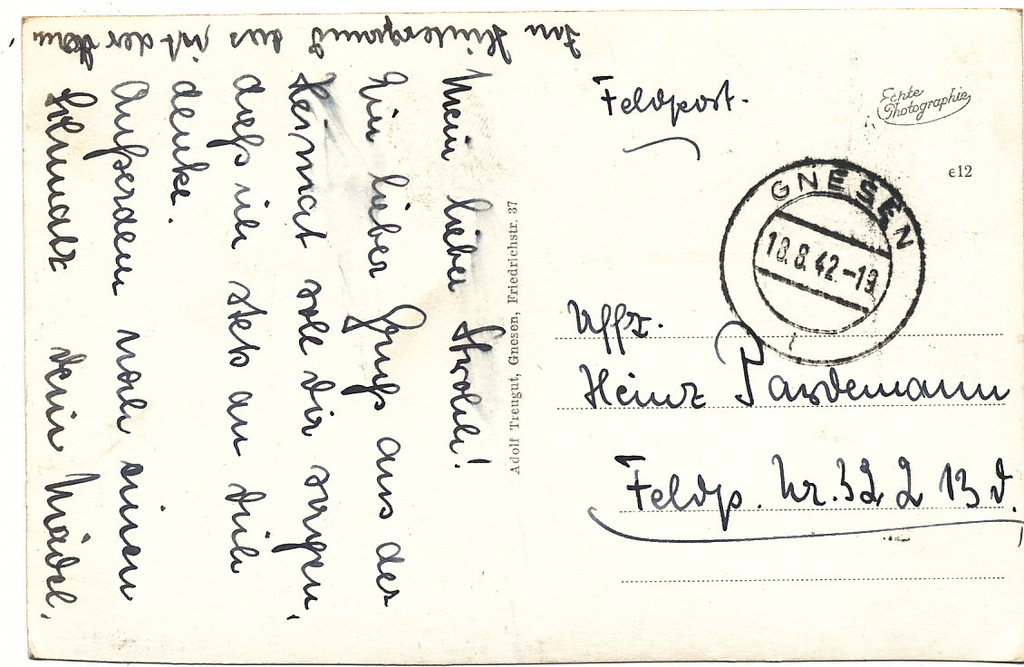 Feldpost.
Echte
Photographie
e12
GNESEN
18.8.42.-19
Uffz.
Heinz Pardemann
Feldp. Nr. 32213 d.
Adolf Treugut, Gnesen, Friedrichstr. 37
Mein lieber
Ein lieber Gruß aus der
Heimat soll dir sagen,
daß ich stets an dich
denke.
Außerdem noch einen
dein Mädel.
Im Hintergrund das ist der Dom